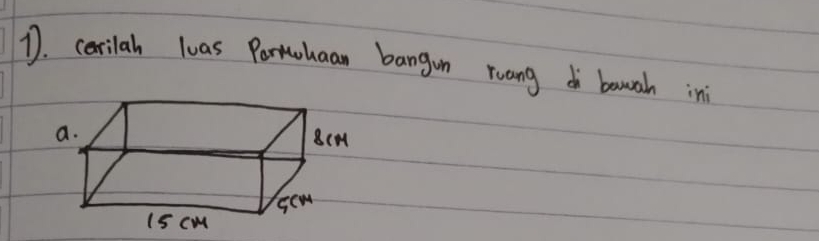 1). carilah luas Permukaan bangun ruang di bawah ini
a.
8CM
5CM
15 CM